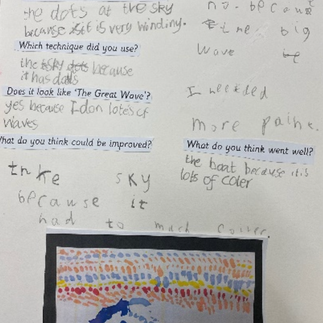 the dots at the sky
because it is very winding.
Which technique did you use?
the sky dots because
it has dots
Does it look like 'The Great Wave'?
yes because I don lotes of
waves
What do you think could be improved?
the sky
because it
had to much
no. because
time big
wave
I needed
more paint.
What do you think went well?
the boat because it is
lots of coler